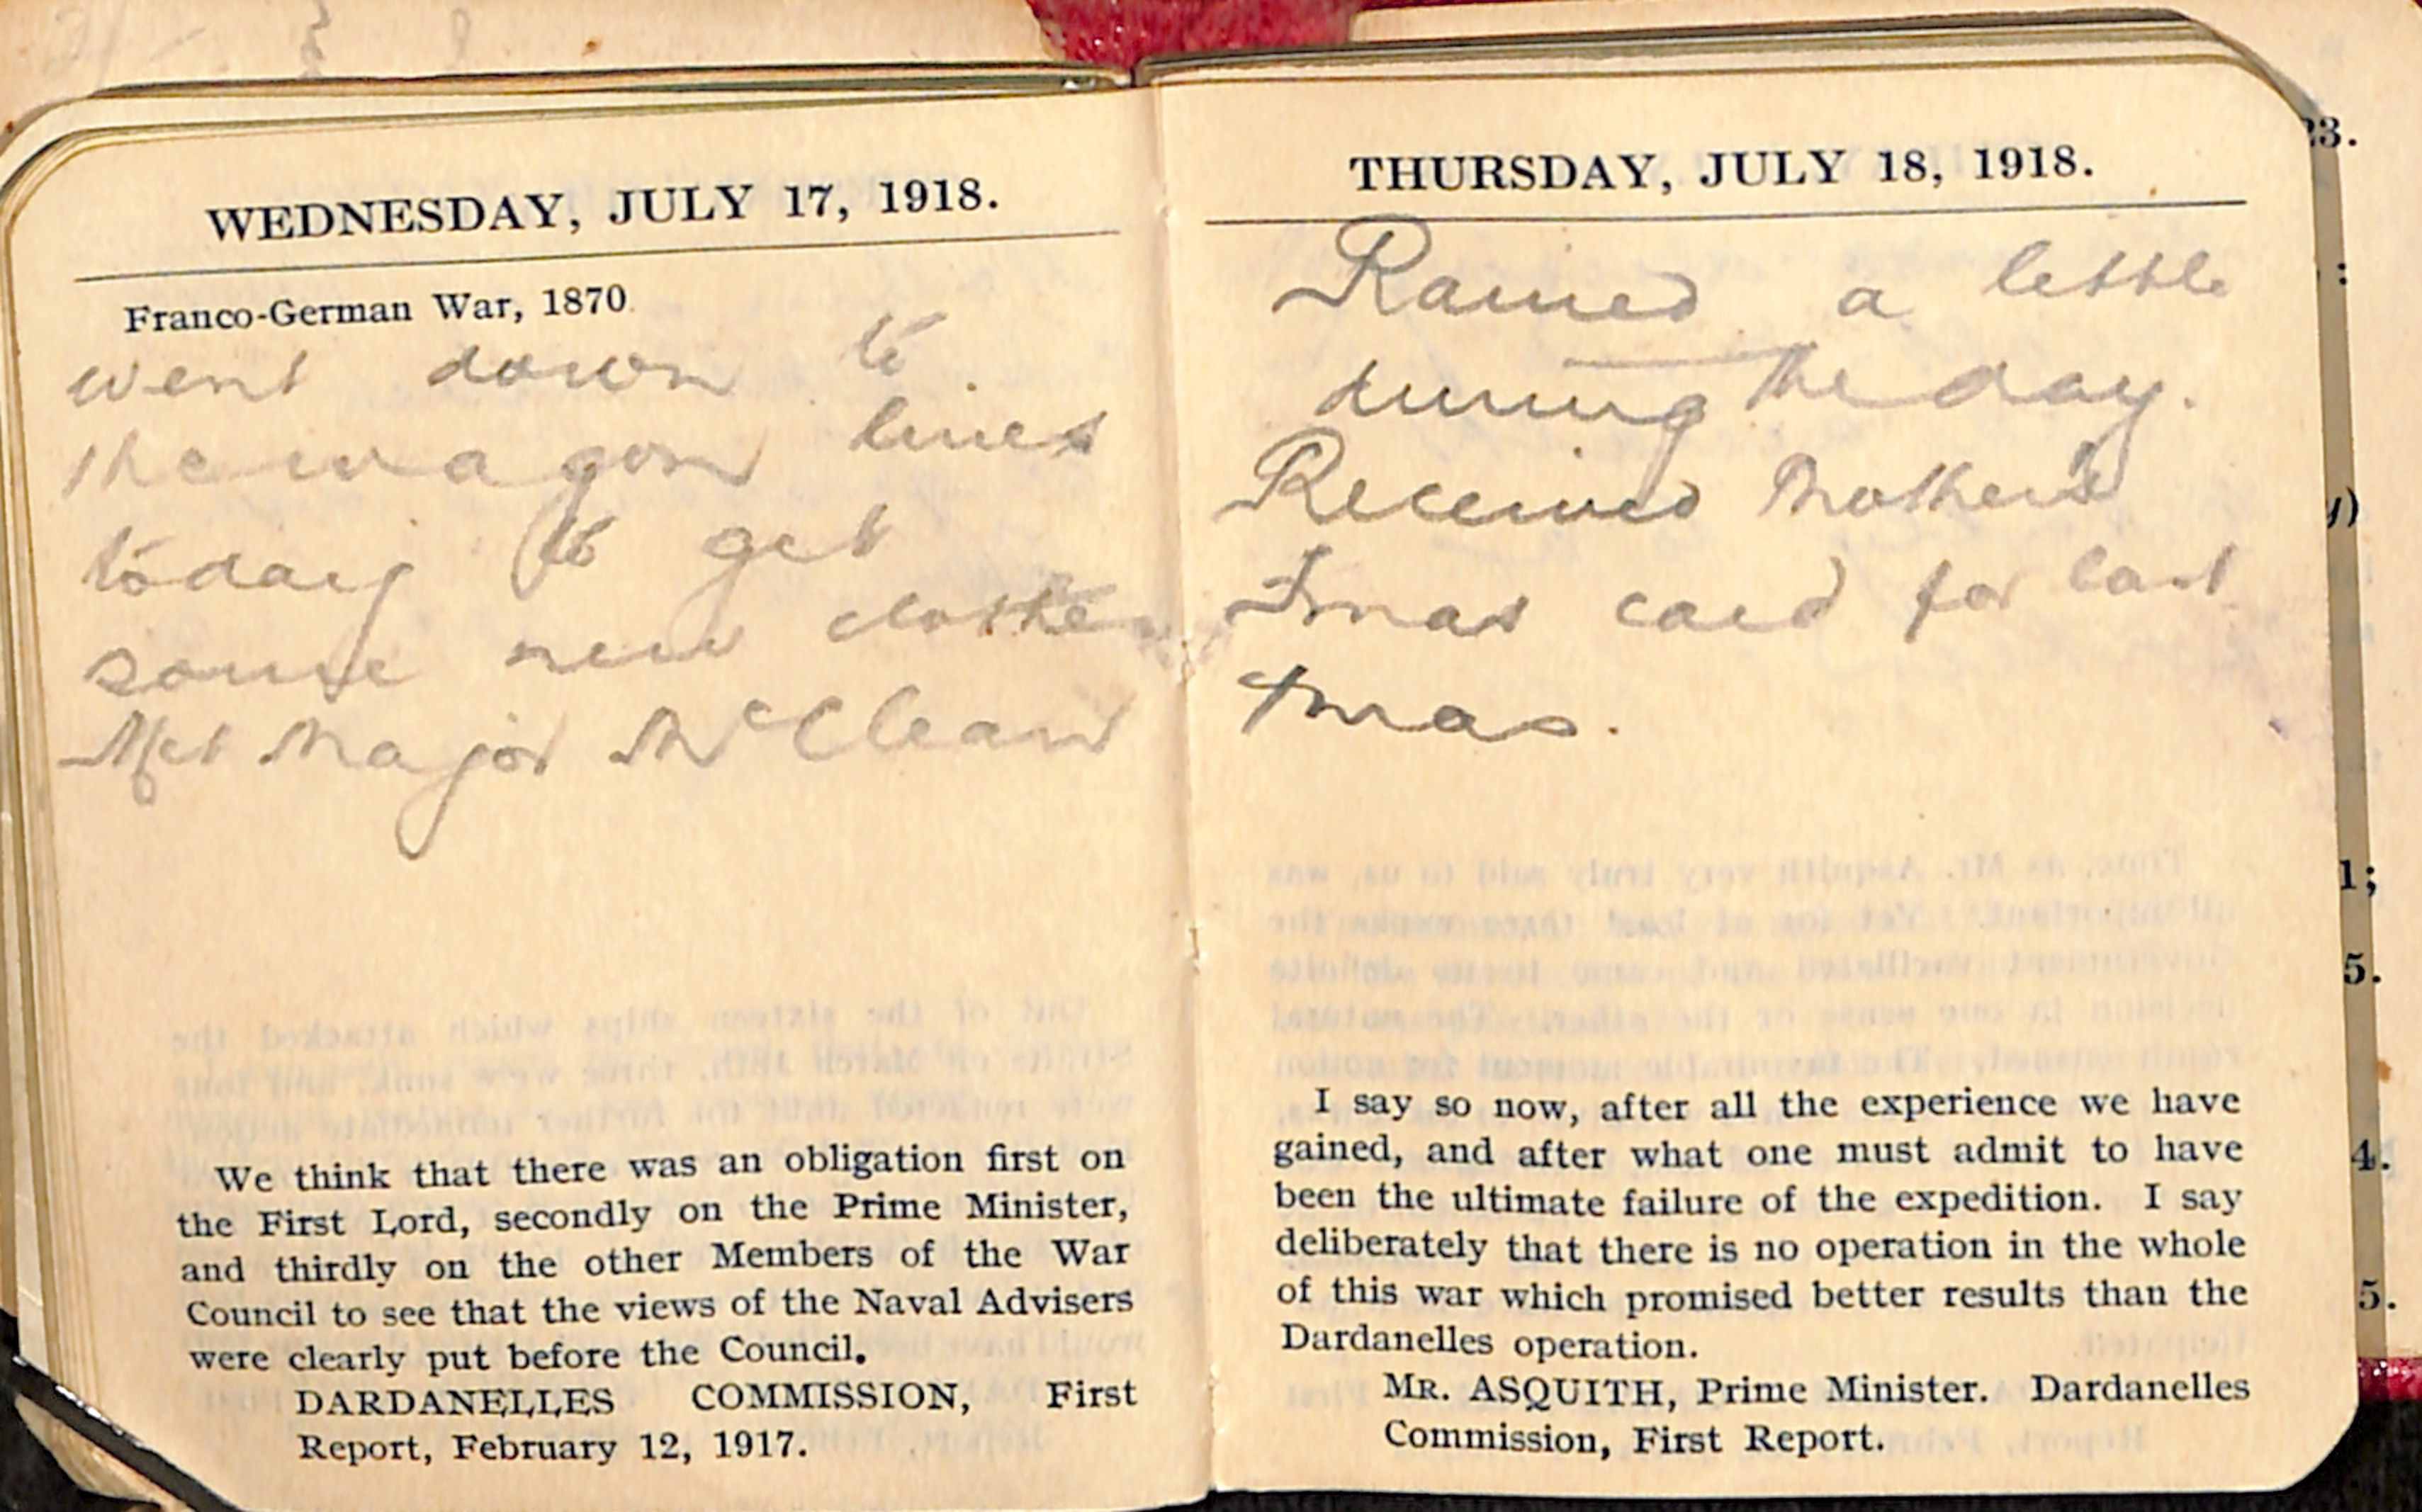 WEDNESDAY, JULY 17, 1918.
Franco-German War, 1870.
went down to
the wagon lines
today to get
some new clothes
Met Major McClean
We think that there was an obligation first on
the First Lord, secondly on the Prime Minister,
and thirdly on the other Members of the War
Council to see that the views of the Naval Advisers
were clearly put before the Council.
DARDANELLES COMMISSION, First
Report, February 12, 1917.
THURSDAY, JULY 18, 1918.
Rained a little
during the day.
Received Mothers
Xmas card for last
Xmas.
I say so now, after all the experience we have
gained, and after what one must admit to have
been the ultimate failure of the expedition. I say
deliberately that there is no operation in the whole
of this war which promised better results than the
Dardanelles operation.
MR. ASQUITH, Prime Minister. Dardanelles
Commission, First Report.
23.
:
y)
1;
5.
4.
5.